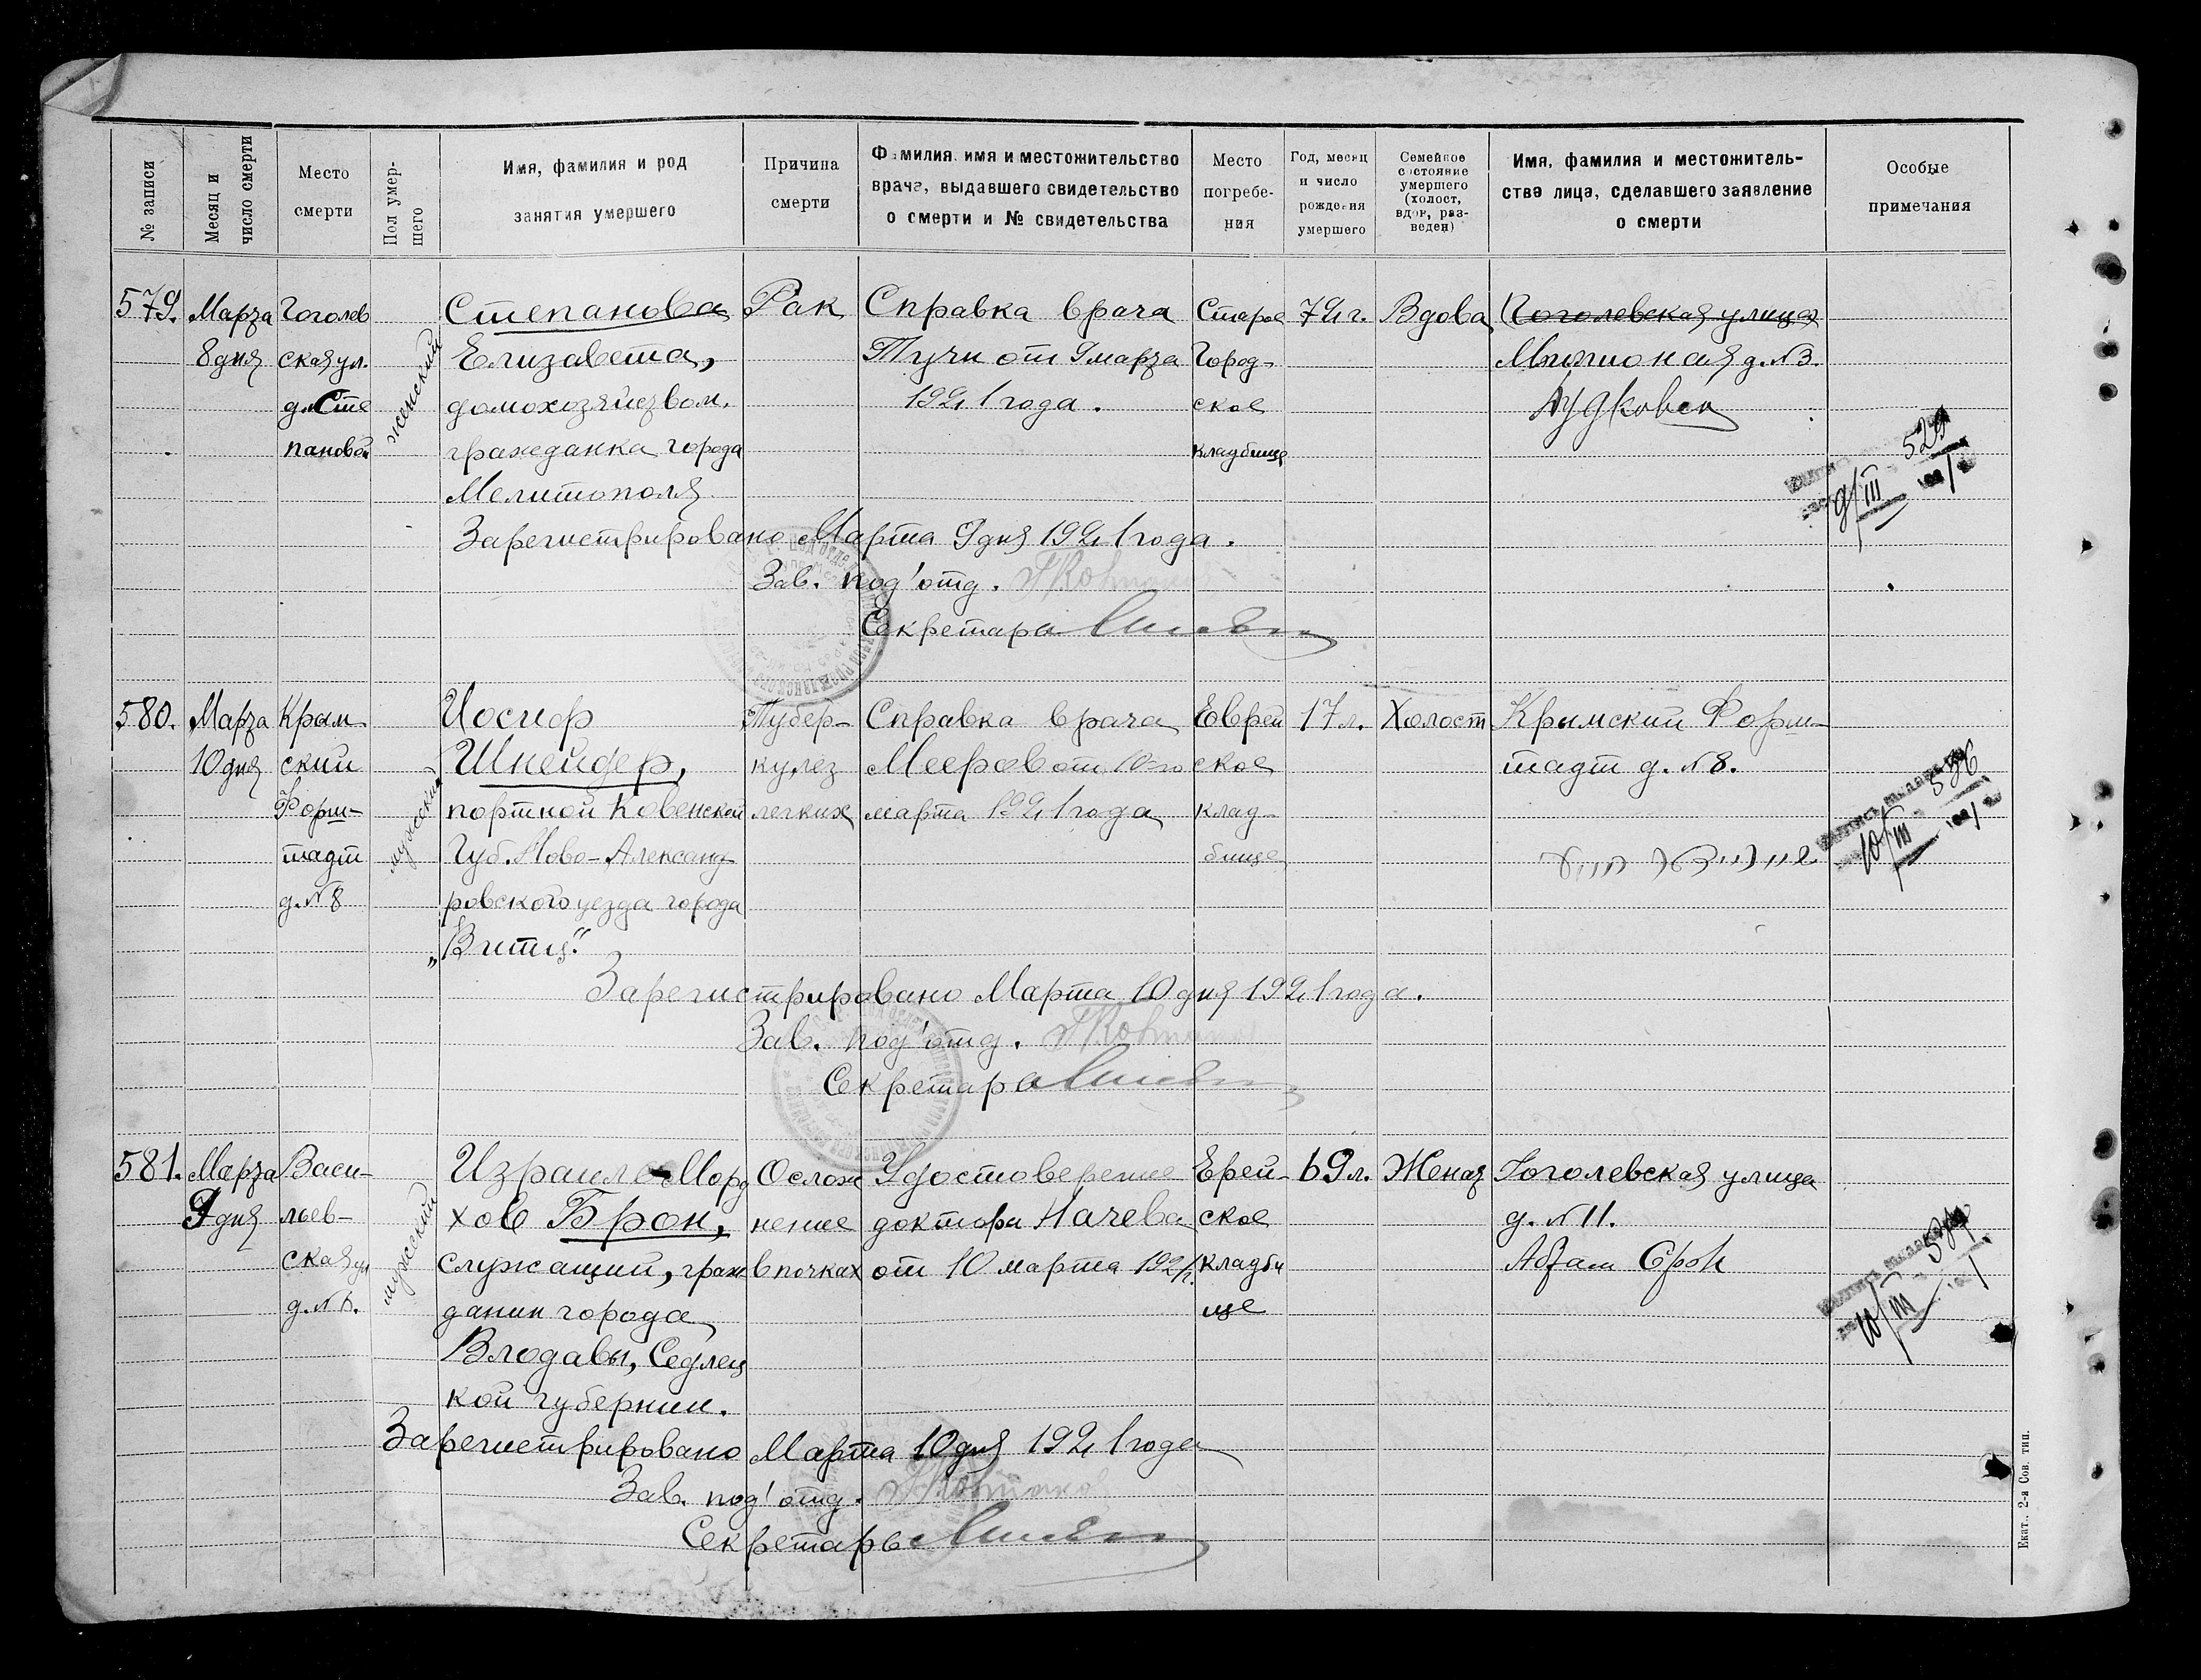 № записи
Месяц и
число смерти
Место
смерти
Пол умер-
шего
Имя, фамилия и род
занятия умершего
Причина
смерти
Фамилия, имя и местожительство
врача, выдавшего свидетельство
о смерти и № свидетельства
Место
погребе-
ния
Год, месяц
и число
рождения
умершего
Семейное
состояние
умершего
(холост,
вдов, раз-
веден)
Имя, фамилия и местожитель-
ства лица, сделавшего заявление
о смерти
Особые
примечания
579.
Марта
8 дня
Гоголев
ская ул.
д. Сте
пановой
женский
Степанова
Елизавета,
домохозяйством.
гражданка города
Мелитополя
Рак
Справка врача
Тучи от 9 марта
1921 года.
Старое
Город-
ское
кладбище
72 г.
Вдова
Гоголевская улица
д. № 3.
9/III
Зарегистрировано Марта 9 дня 1921 года.
Зав. под'отд.
Секретарь
580.
Марта
10 дня
Крым-
ский
Форш-
тадт
д. № 8
мужской
Иосиф
Шнейдер,
портной Ковенской
Губ. Ново-Александ-
ровского уезда города
„Витц."
Тубер-
кулез
легких
Справка врача
Мееров от 10-го
марта 1921 года
Еврей
ское
клад-
бище
17 л.
Холост
Крымский Форш-
тадт д. № 8.
10/III
Зарегистрировано Марта 10 дня 1921 года.
Зав. под'отд.
Секретарь
581.
Марта
9 дня
Васи-
льев-
ская ул
мужской
Израиль Морд
хов Брон,
служащий, граж
данин города
Влодавы, Седлец
кой губернии.
Ослож
нение
в почках
Удостоверение
доктора Начева
от 10 марта 1921 г.
Ерей-
ское
кладби
ще
69 л.
Женат
Гоголевская улица
д. № 11.
Абрам Брон
10/III
Зарегистрировано Марта 10 дня 1921 года
Зав. под'отд.
Секретарь
Екат., 2-я Сов. тип.